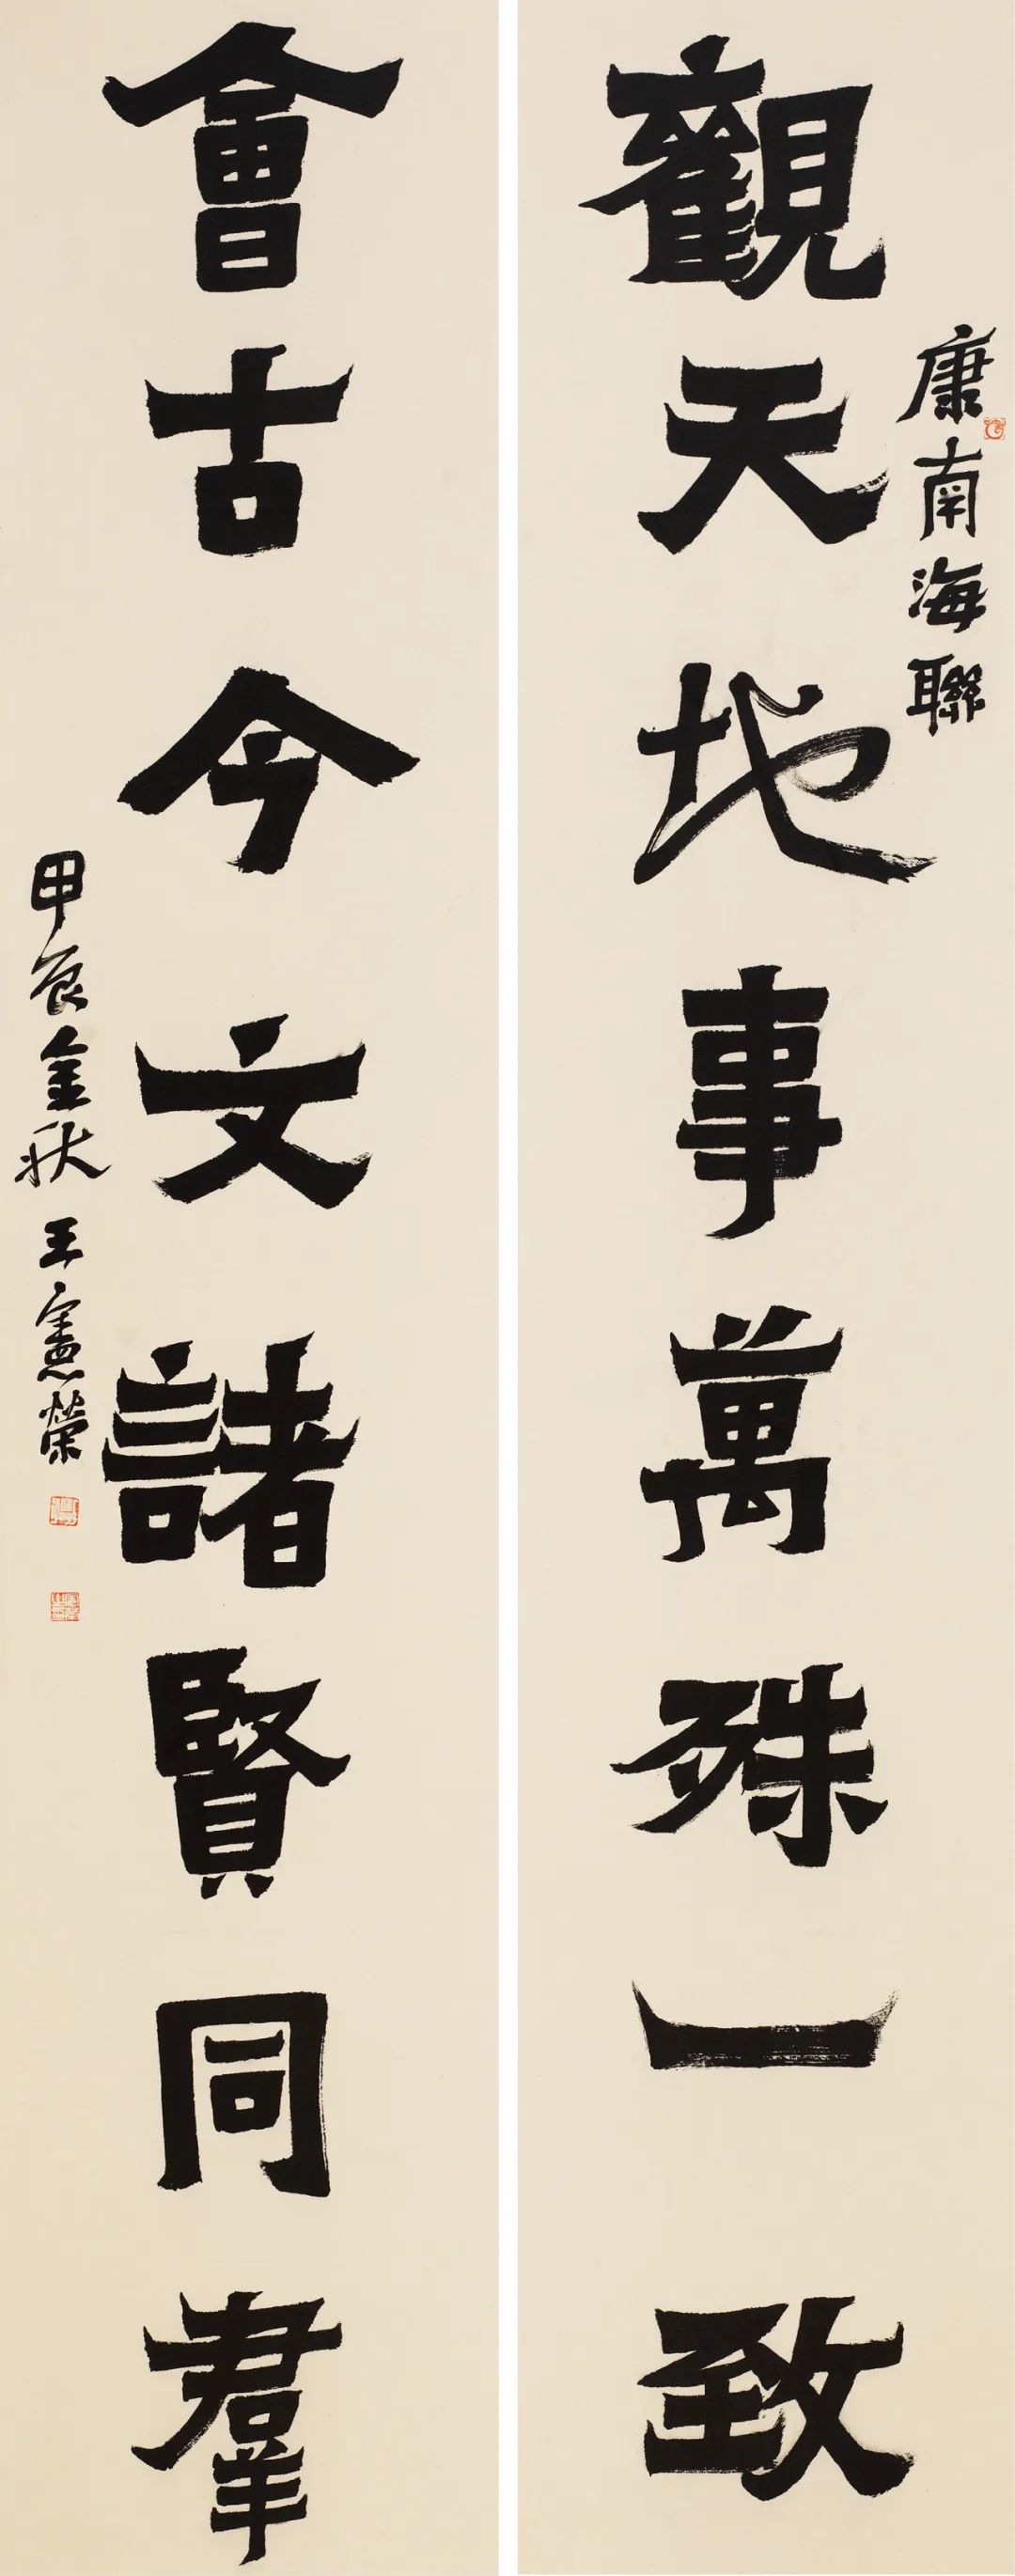 觀天地事萬殊一致
康南海聯
會古今文諸賢同羣
甲辰金秋王憲榮